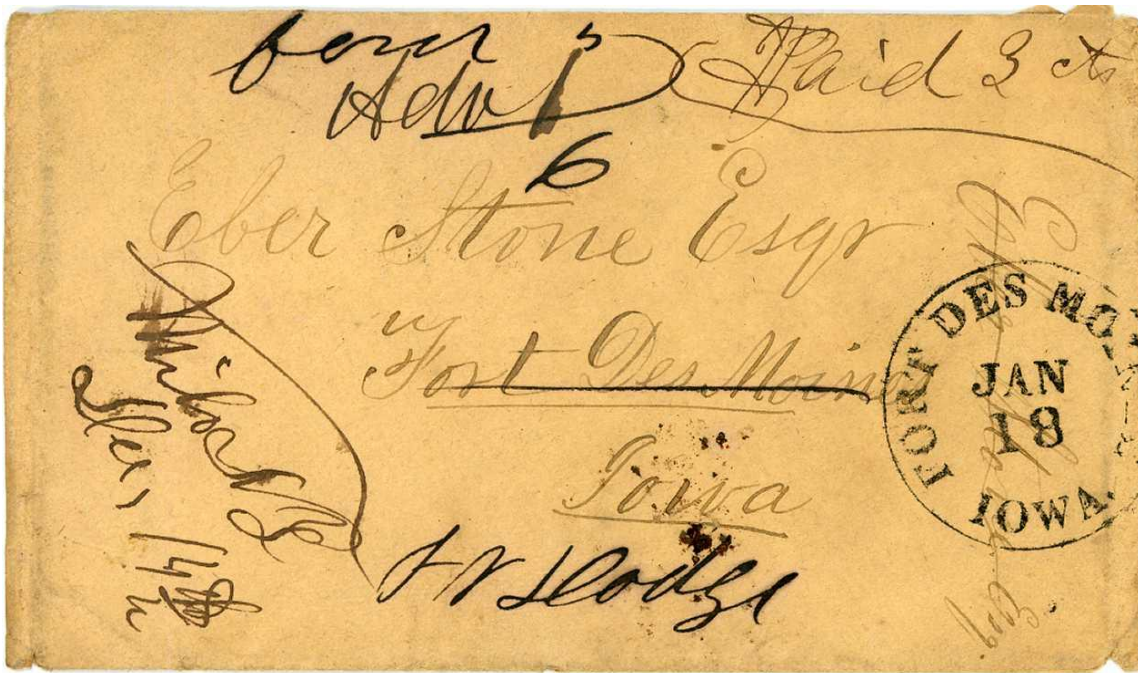 Forw d 3
Adv 1
6
Paid 3 cts
Eber Stone Esqr
Fort Des Moines
Iowa
Ft Dodge
Dec 14th
FORT DES MOINES
JAN
18
IOWA.
Esq.